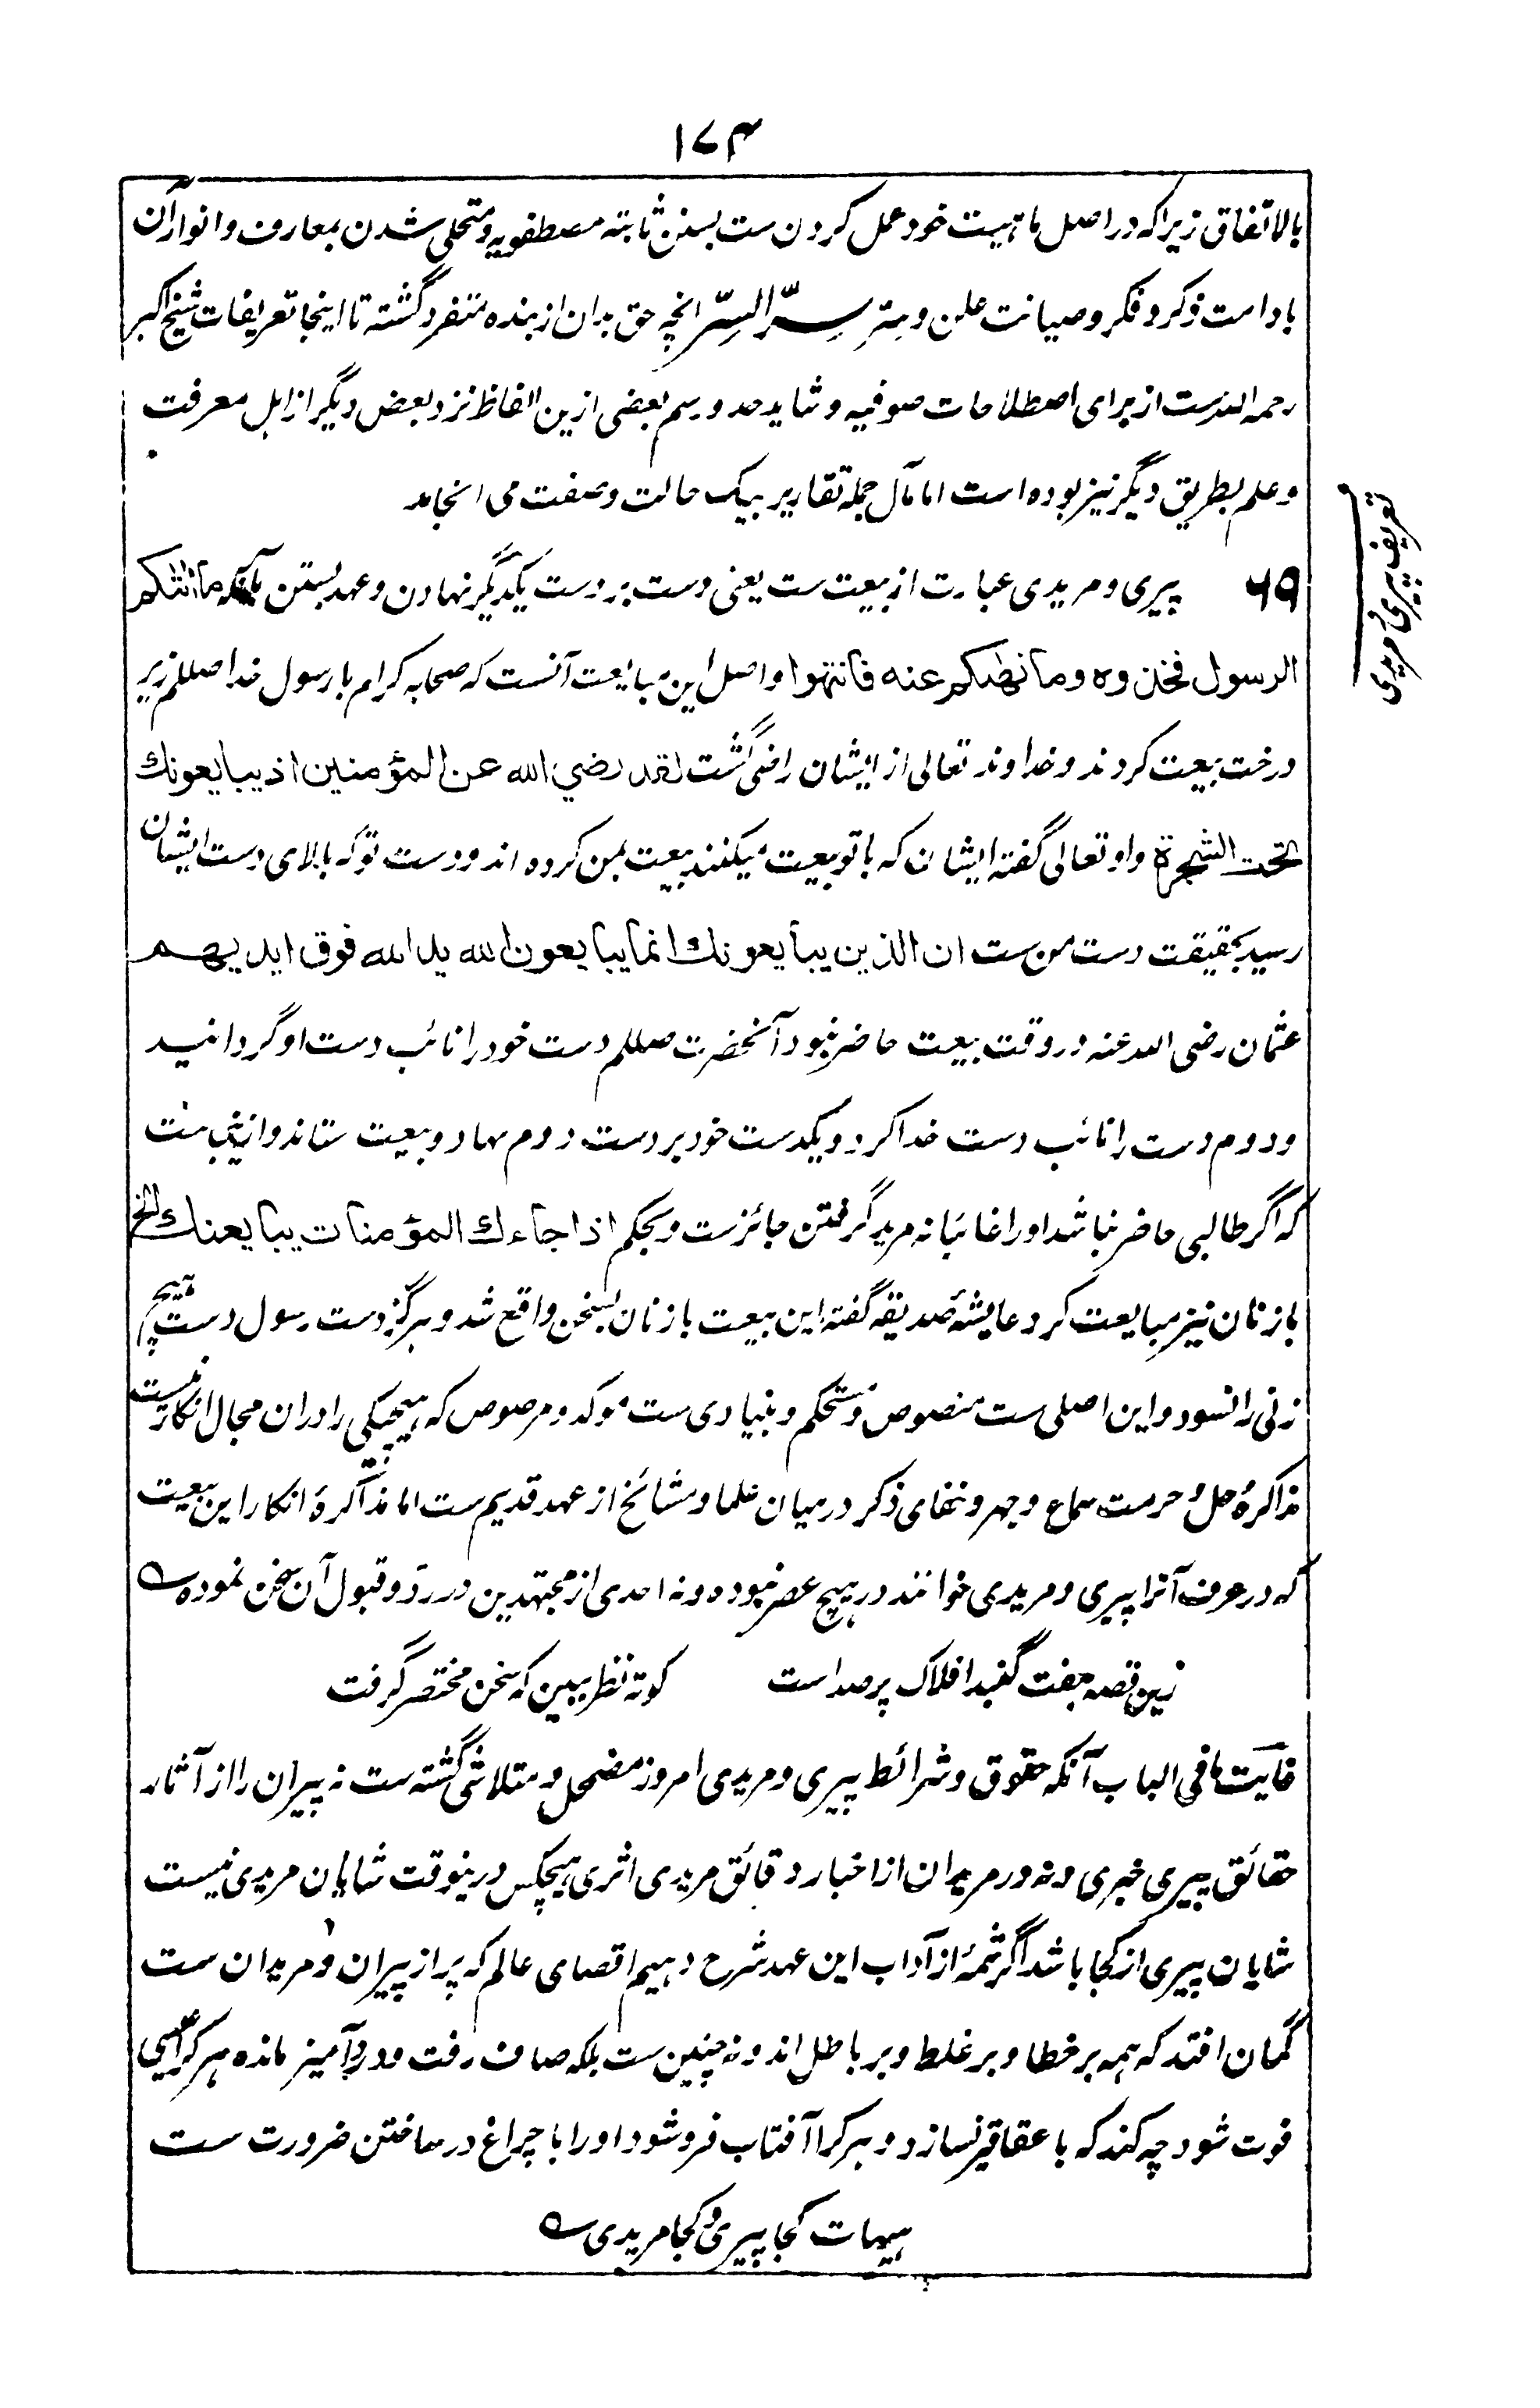 ۱۷۴
بالاتفاق زیراکه در اصل ماهیت خود عمل کردن ست بسنن ثابته مصطفویه و متحلی شدن بمعارف و انوار آن
با دامت ذکر و فکر و صیانت علن و سر سِرُّ السِرّ انچه حق بدان از بنده متفرد گشته تا اینجا تعریفات شیخ اکبر
رحمه الله ست از برای اصطلاحات صوفیه و شاید حد و رسم بعضی ازین الفاظ نزد بعض دیگر از اهل معرفت
و علم بطریق دیگر نیز بوده است اما مآل جمله تقاریر بیک حالت و صفت می انجامد
تعریف پیری و مریدی
۶۹ پیری و مریدی عبارت از بیعت ست یعنی دست بر دست یکدیگر نهادن و عهد بستن بآنکه ما اتٰکم
الرسول فخذوه وما نهٰکم عنه فانتهوا و اصل این مبایعت آنست که صحابه کرام با رسول خدا صللم زیر
درخت بیعت کردند و خداوند تعالی از ایشان راضی گشت لقد رضي الله عن المؤمنین اذ یبایعونك
تحت الشجرة و او تعالی گفته ایشان که با تو بیعت میکنند بیعت بمن کرده اند و دست تو که بالای دست ایشان
رسید بحقیقت دست من ست ان الذین یبایعونك انما یبایعون الله ید الله فوق ایدیهم
عثمان رضی الله عنه در وقت بیعت حاضر نبود آنحضرت صللم دست خود را نائب دست او گردانید
و دوم دست را نائب دست خدا کرد و یکدست خود بر دست دوم نهاد و بیعت ستاند و ازینجاست
که اگر طالبی حاضر نباشد او را غائبانه مرید گرفتن جائز ست و بحکم اذا جاءك المؤمنات یبایعنك الخ
با زنان نیز مبایعت کرد عایشه صدیقه گفته این بیعت با زنان بسخن واقع شد و هرگز دست رسول دست هیچ
زنی را نسود و این اصلی ست منصوص و مستحکم و بنیادی ست موکد و مرصوص که هیچیکی را دران مجال انکار نیست
مذاکرهٔ حل و حرمت سماع و جهر و خفای ذکر در میان علما و مشائخ از عهد قدیم ست اما مذاکرهٔ انکار این بیعت
که در عرف آنرا پیری و مریدی خوانند در هیچ عصر نبوده و نه احدی از مجتهدین در رد و قبول آن سخن نموده ؎
زین قصه هفت گنبد افلاک پر صداست کوته نظر ببین که سخن مختصر گرفت
غایت ما فی الباب آنکه حقوق و شرائط پیری و مریدی امروز مضمحل و متلاشی گشته ست نه پیران را از آثار
حقائق پیری خبری و نه در مریدان از اخبار دقائق مریدی اثری هیچکس درینوقت شایان مریدی نیست
شایان پیری از کجا باشد اگر شمهٔ از آداب این عهد شرح دهیم اقصای عالم که پر از پیران و مریدان ست
گمان افتد که همه بر خطا و بر غلط و بر باطل اند و نه چنین ست بلکه صاف رفت و درد آمیز مانده هر کرا عیسی
فوت شود چه کند که با عقاقیر نسازد و هر کرا آفتاب فروشود او را با چراغ در ساختن ضرورت ست
هیهات کجا پیری و کجا مریدی ؎